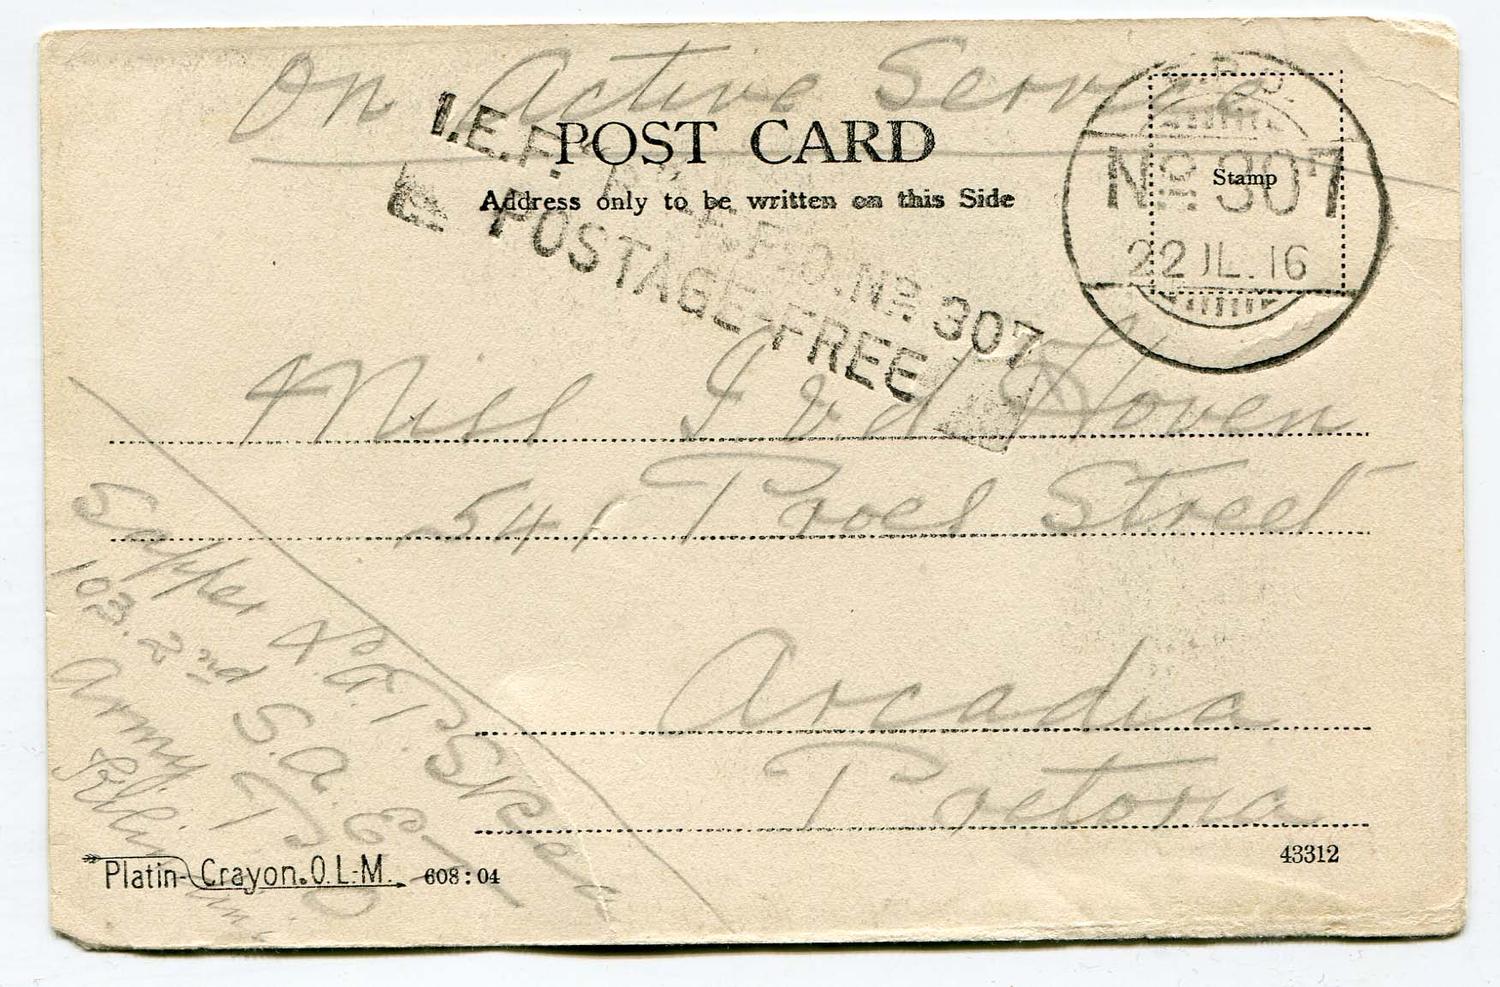 On Active Service
I.E.F. "B" F.P.O. Nº 307
POSTAGE FREE
POST CARD
Address only to be written on this Side
F.P.O.
Nº 307
22 JL. 16
Stamp
Miss I v d Hoven
541 Proes Street
Arcadia
Pretoria
Sapper
103. 2nd S.A.E
Army P O
43312
Platin-Crayon.O.L.M. 608:04